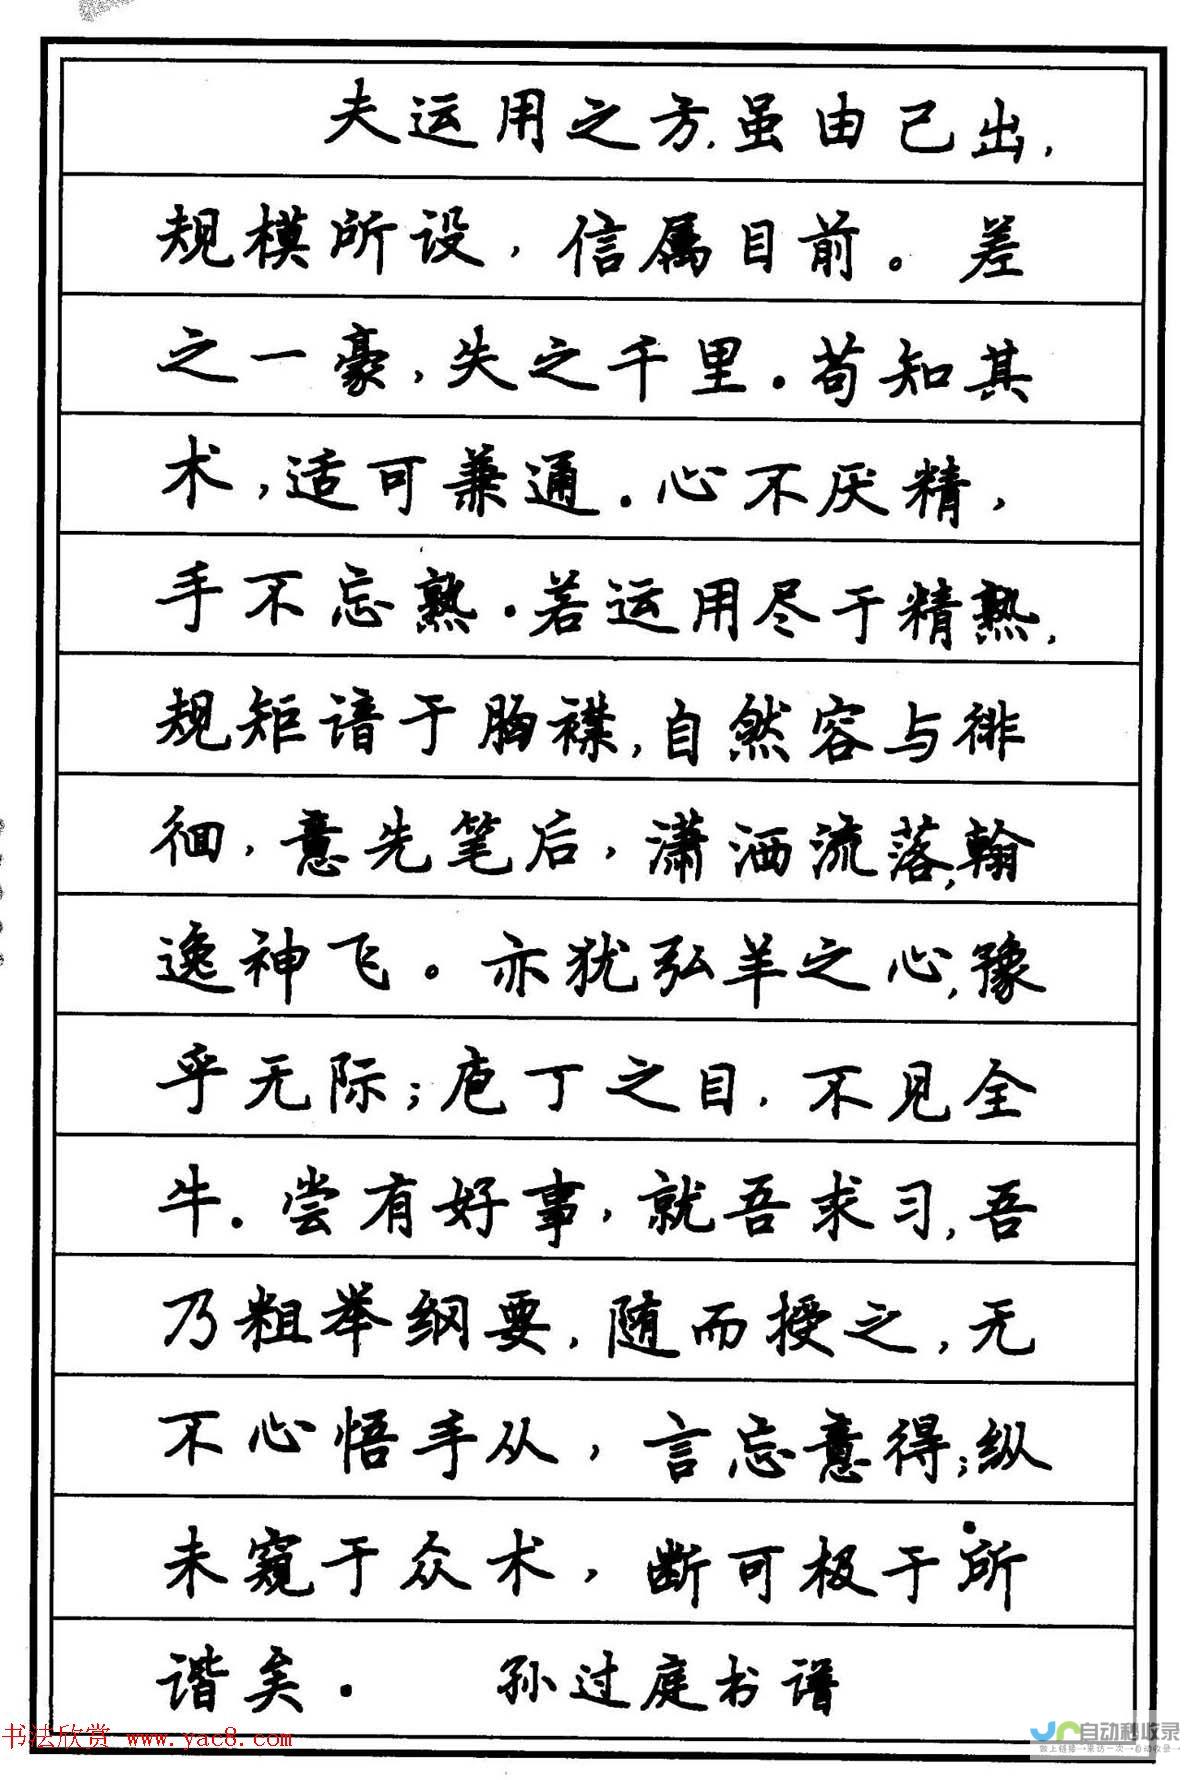 夫运用之方,虽由己出,
规模所设,信属目前。差
之一豪,失之千里。苟知其
术,适可兼通。心不厌精,
手不忘熟。若运用尽于精熟,
规矩谙于胸襟,自然容与徘
徊,意先笔后,潇洒流落,翰
逸神飞。亦犹弘羊之心,豫
乎无际;庖丁之目,不见全
牛。尝有好事,就吾求习,吾
乃粗举纲要,随而授之,无
不心悟手从,言忘意得;纵
未窥于众术,断可极于所
诣矣。 孙过庭书谱
书法欣赏 www.yac8.com
自动秒收录
做上链接→来访一次→自动收录